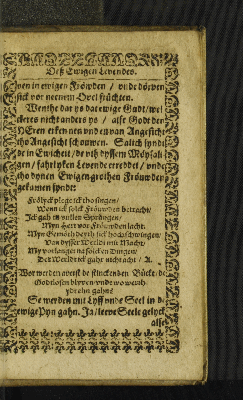 Deß Ewigen Levendes.
nen in ewigen Fröwden / unde dörven
sick vor nenem Qvel früchten.
Wenthe dat ys dat ewige Gudt / wel
ckeres nicht anders ys / alse Godt den
HEren erkennen und en van Angesicht
tho Angesicht schouwen. Salich synd
de in Ewicheit / de uth dyssem
gen / Levende erreddet / unde
tho dynen Ewigen groten Fröuwden
gekamen synde:
Frölyck plege ick tho singen /
Wenn ick solck Fröuwden betracht /
Ick gah in vullen Sprüngen /
Myn Herr vor Fröuwden lacht.
Myn Gemöth deyth sick hoch schwingen /
Van dysser Werldt mit Macht /
My vorlanget na solcken Dingen /
Der Werldt ick gahr nicht acht / A.
Wor werden averst de stinckenden Bücke / de
Godtlosen blyven unde wo werth
ydt ehn gahn?
Se werden mit Lyff unde Seel in de
ewige Pyn gahn. Ja / leeve Seele gelyck
alse